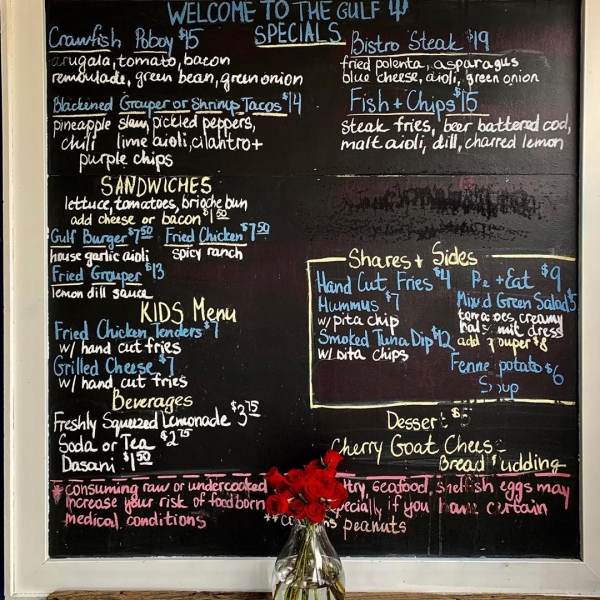 WELCOME TO THE GULF
SPECIALS
Crawfish Poboy $15
arugala, tomato, bacon
remoulade, green bean, green onion
Blackened Grouper or Shrimp Tacos $14
pineapple slaw, pickled peppers,
chili lime aioli, cilantro +
purple chips
Bistro Steak $19
fried polenta, asparagus
blue cheese, aioli, green onion
Fish + Chips $15
steak fries, beer battered cod,
malt aioli, dill, charred lemon
SANDWICHES
lettuce, tomatoes, brioche bun
add cheese or bacon $1.50
Gulf Burger $7.50
house garlic aioli
Fried Chicken $7.50
spicy ranch
Fried Grouper $13
lemon dill sauce
KIDS Menu
Fried Chicken Tenders $7
w/ hand cut fries
Grilled Cheese $7
w/ hand cut fries
Beverages
Freshly Squeezed Lemonade $3.75
Soda or Tea $2.75
Dasani $1.50
Shares + Sides
Hand Cut Fries $4
Hummus $7
w/ pita chip
Smoked Tuna Dip $12
w/ pita chips
+ Eat $9
Mixed Green Salad $5
tomatoes, creamy
dress
add grouper $8
potato $6
Soup
Dessert
Cherry Goat Cheese
Bread Pudding
* consuming raw or undercooked seafood, shellfish eggs may
increase your risk of foodborn especially if you have certain
medical conditions
** contains peanuts